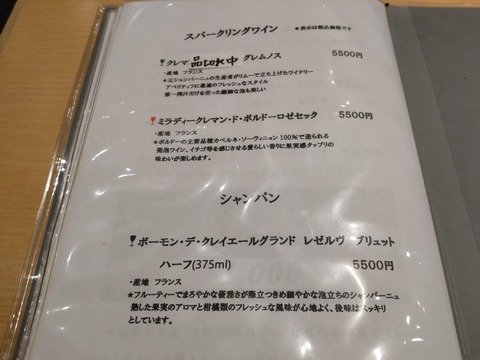 スパークリングワイン
＊表示は税込価格です
クレマ 品切れ中 グレムノス 5500円
・産地 フランス
★元シャンパーニュの生産者がリムーで立ち上げたワイナリー
アペリティフに最適のフレッシュなスタイル
第一搾汁だけを使った繊細な泡も美しい
ミラディークレマン・ド・ボルドーロゼセック 5500円
・産地 フランス
★ボルドーの主要品種カベルネ・ソーヴィニョン 100%で造られる
発泡ワイン、イチゴ等を感じさせる愛らしい香りに果実感タップリの
味わいが楽しめます。
シャンパン
ボーモン・デ・クレイエールグランド レゼルヴ ブリュット
ハーフ(375ml) 5500円
・産地 フランス
★フルーティーでまろやかな優雅さが際立つきめ細やかな泡立ちのシャンパーニュ
熟した果実のアロマと柑橘類のフレッシュな風味が心地よく、後味はスッキリ
としています。